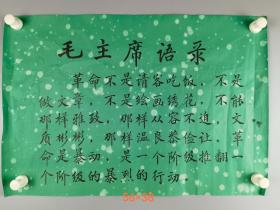 毛主席语录
革命不是请客吃饭，不是
做文章，不是绘画绣花，不能
那样雅致，那样从容不迫，文
质彬彬，那样温良恭俭让，革
命是暴动，是一个阶级推翻一
个阶级的暴烈的行动。
56×38